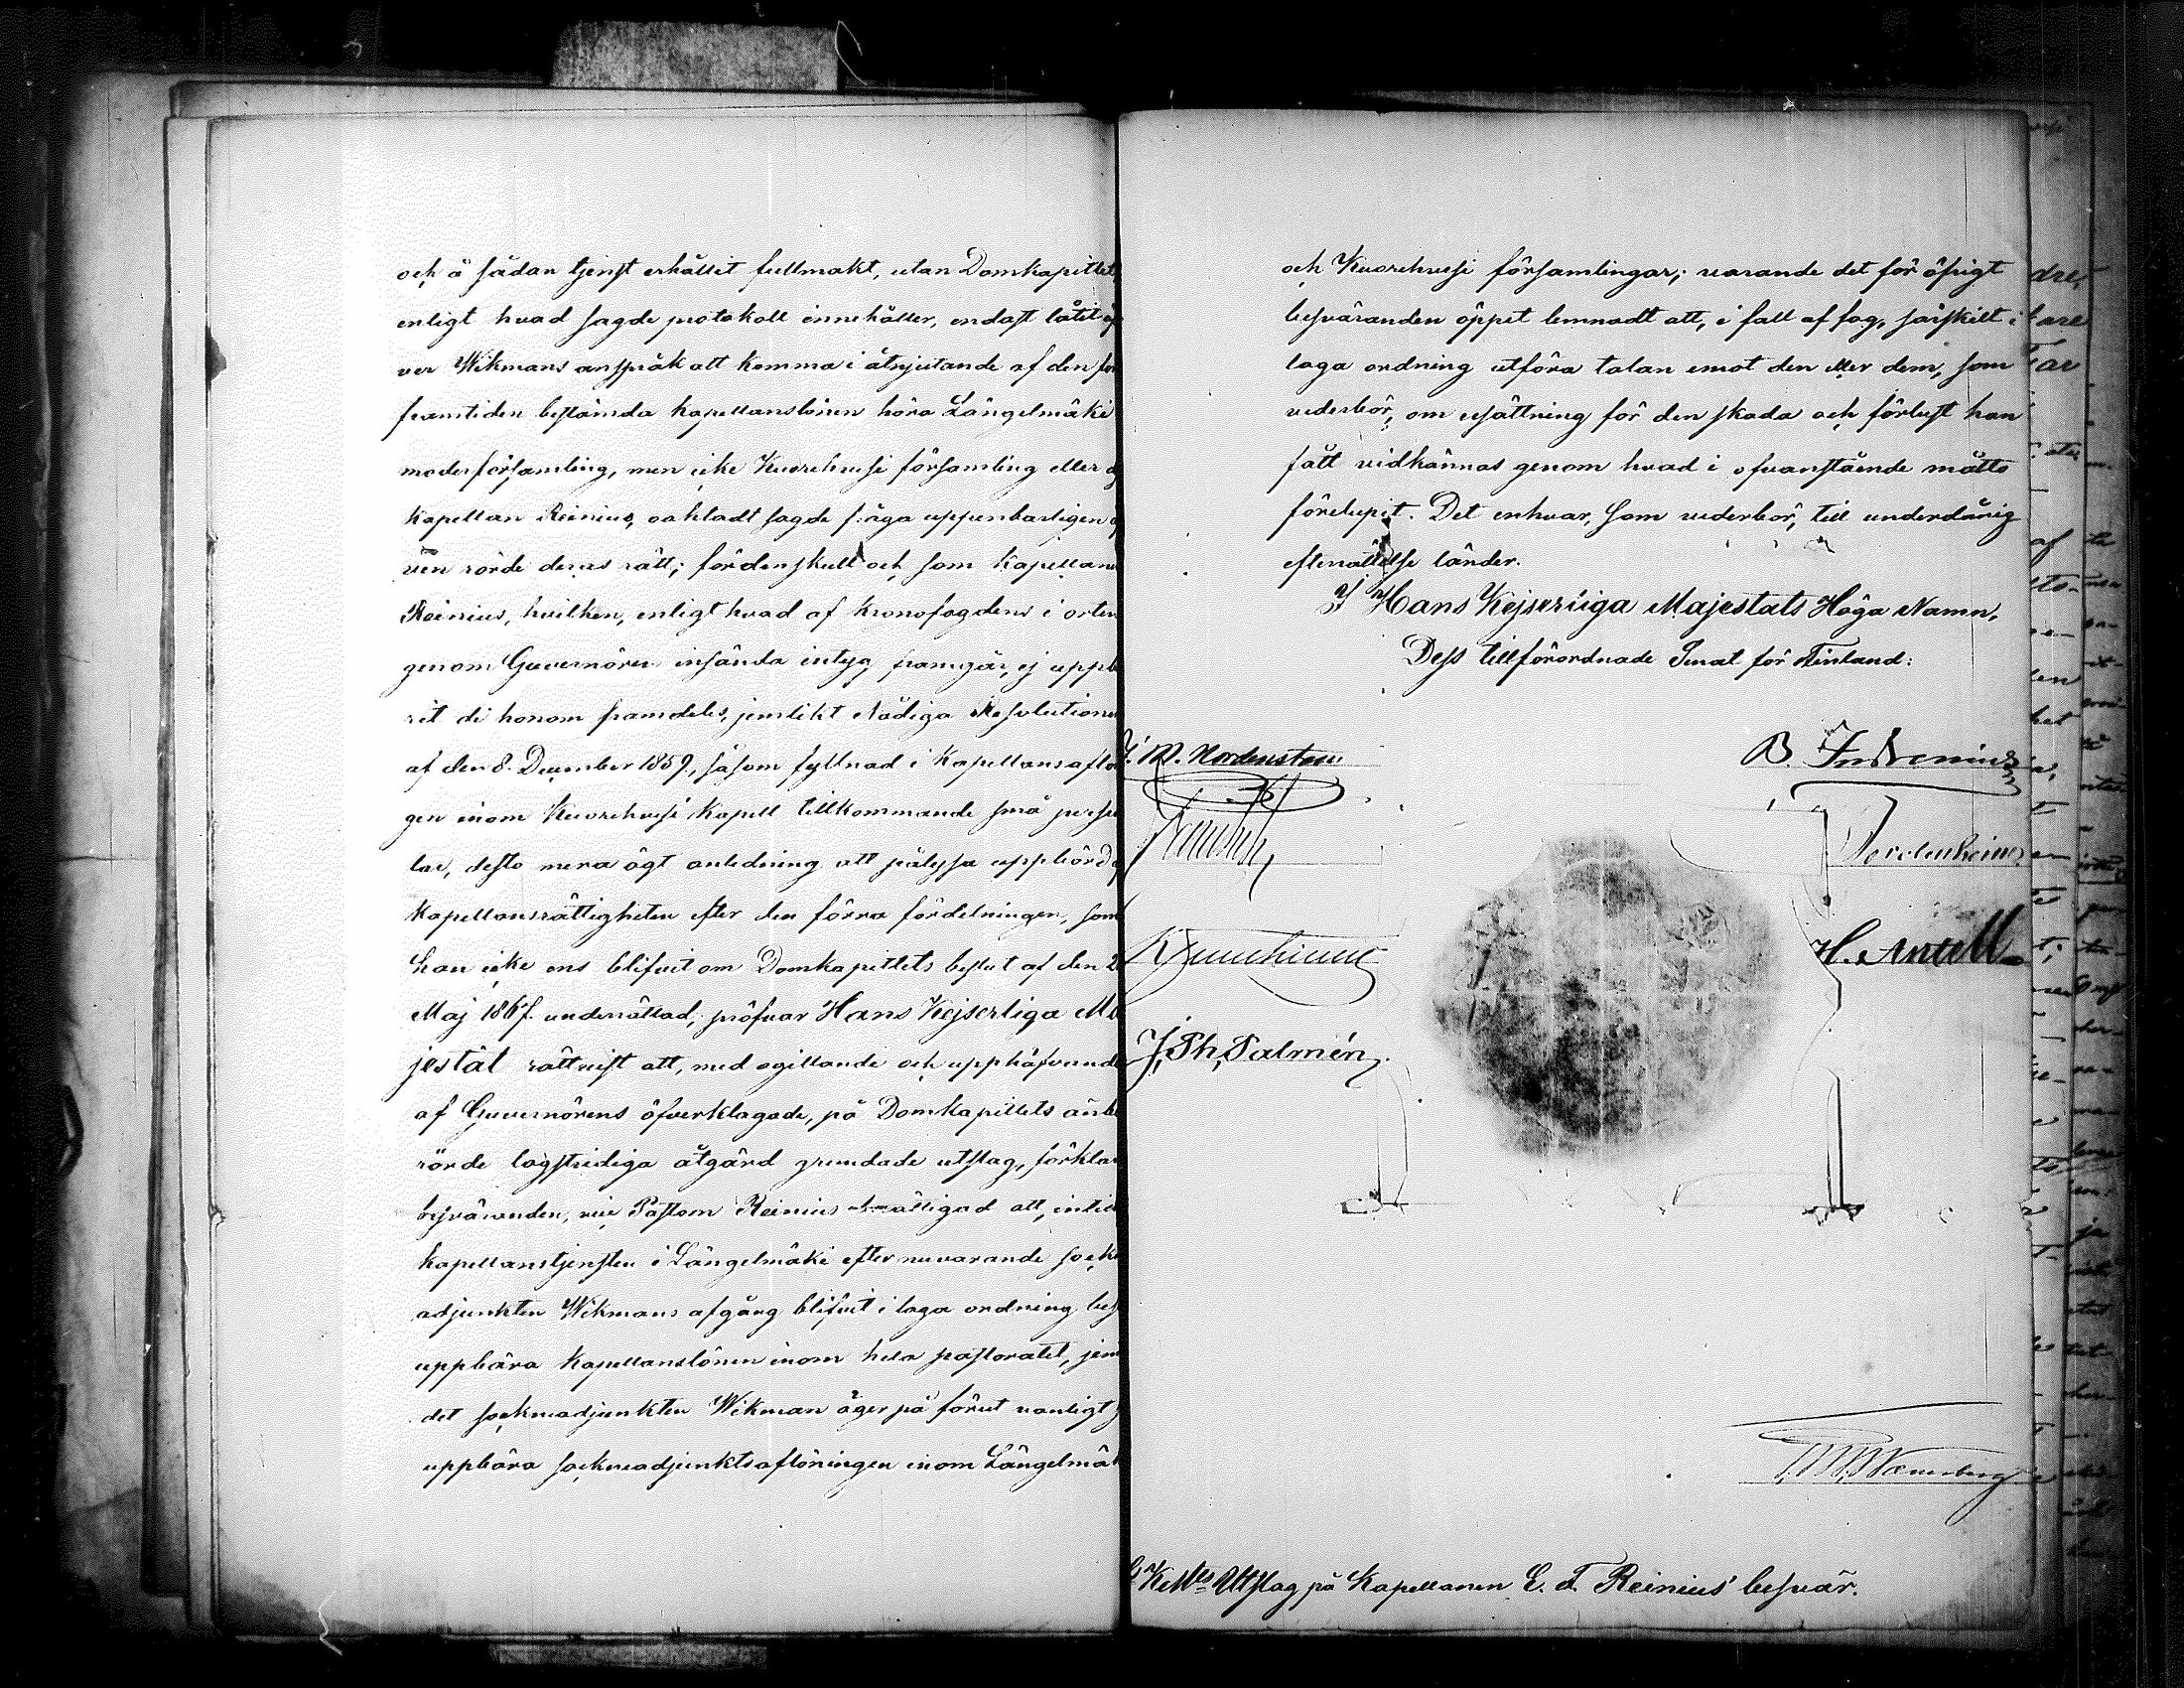 och å sådan tjenst erhållit fullmakt, utan Domkapitlet,
enligt hvad sagde protokoll innehåller, endast låtit öf
ver Wikmans anspråk att komma i åtnjutande af den för
framtiden bestämda kapellanslönen höra Längelmäki
moderförsamling, men icke Kuorehvesi församling eller
Kapellan Reinius, oaktadt sagde fråga uppenbarligen
ven rörde deras rätt; fördenskull och som Kapellan
Reinius, hvilken, enligt hvad af kronofogdens i orten
genom Guvernören insända intyg framgår, ej uppbu
rit de honom framdeles, jemlikt Nådiga Resolutionen
af den 8. December 1859, såsom fyllnad i Kapellansaflö
gen inom Kuorehvesi Kapell tillkommande små perse
lar, desto mera ägt anledning att pålysa uppbörd
kapellansrättigheten efter den förra fördelningen, som
han icke ens blifvit om Domkapitlets beslut af den 2
Maj 1867 underrättad; pröfvar Hans Kejserliga Ma
jestät rättvist att, med ogillande och upphäfvande
af Guvernörens öfverklagade, på Domkapitlets ånbe
rörde lagstridiga åtgärd grundade utslag, förklara
besväranden, vice Pastorn Reinius berättigad att, intill
kapellanstjensten i Längelmäki efter nuvarande socke
adjunkten Wikmans afgång blifvit i laga ordning bes
uppbära Kapellanslönen inom hela pastoratet, jem
det sockneadjunkten Wikman äger på förut vanligt
uppbära sockneadjunktsaflöningen inom Längelmäk
och Kuorehvesi församlingar; varande det för öfrigt
besväranden öppet lemnadt att, i fall af fog, särskilt i
laga ordning utföra talan emot den eller dem, som
vederbör, om ersättning för den skada och förlust han
fått vidkännas genom hvad i ofvanstående måtto
förelupit. Det enhvar, som vederbör, till underdånig
efterrättelse länder.
I Hans Kejserliga Majestäts Höga Namn,
Dess tillförordnade Senat för Finland:
J. M. Nordenstam
B. Indrenius
H. Antell
J. Ph. Palmén
Utslag på Kapellanen E. F. Reinius' besvär.